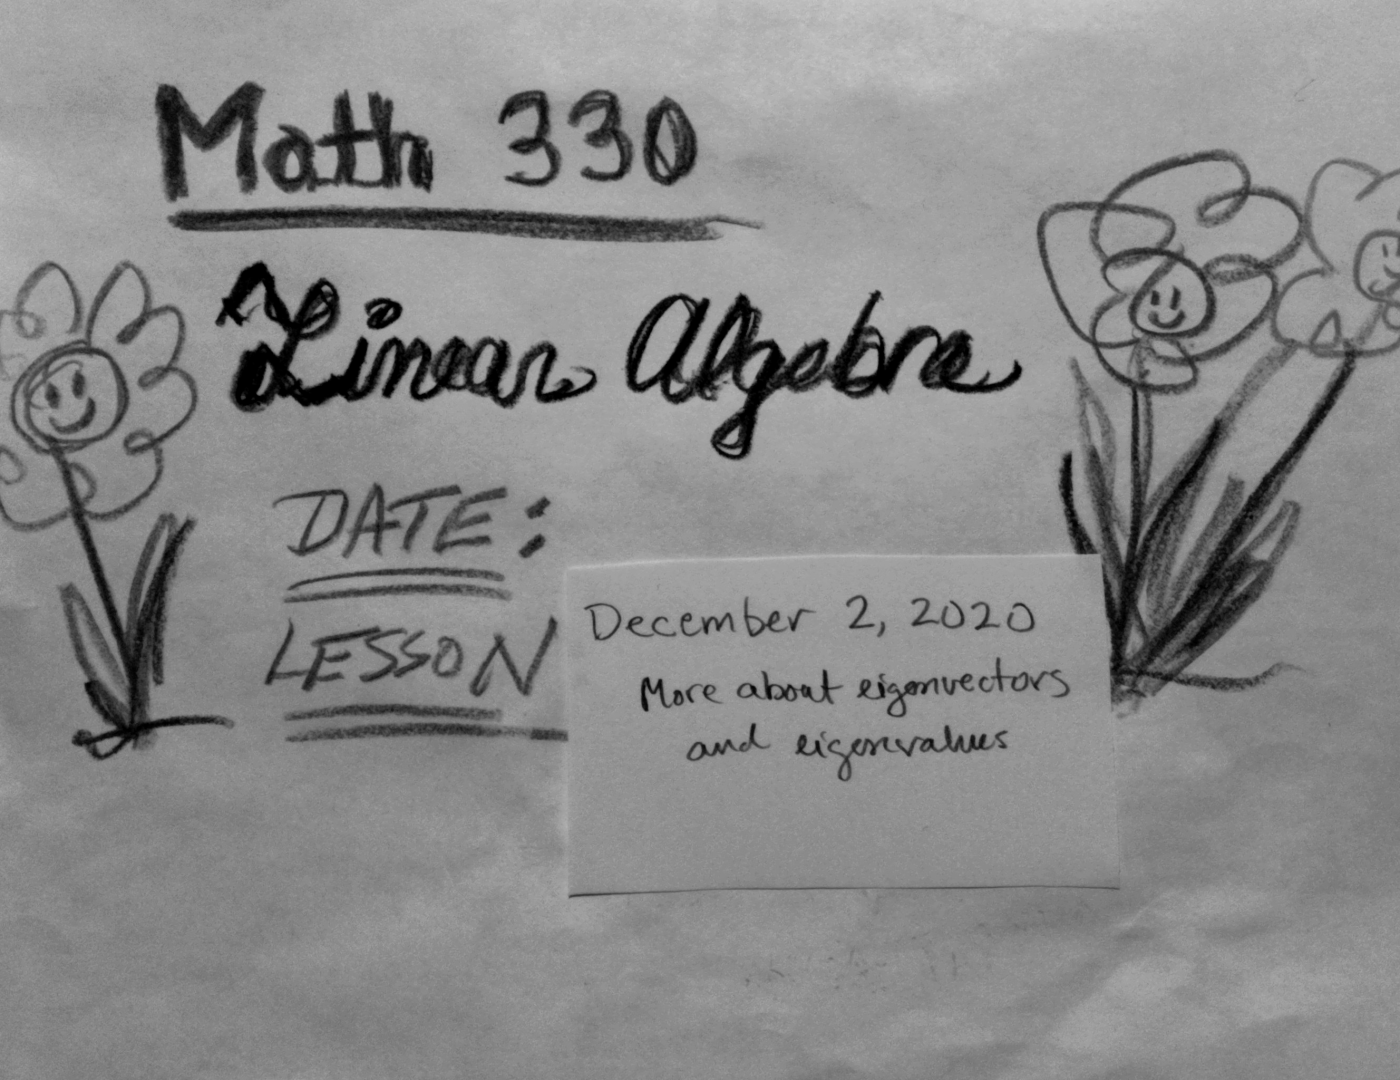 Math 330
Linear Algebra
DATE:
December 2, 2020
LESSON
More about eigenvectors
and eigenvalues